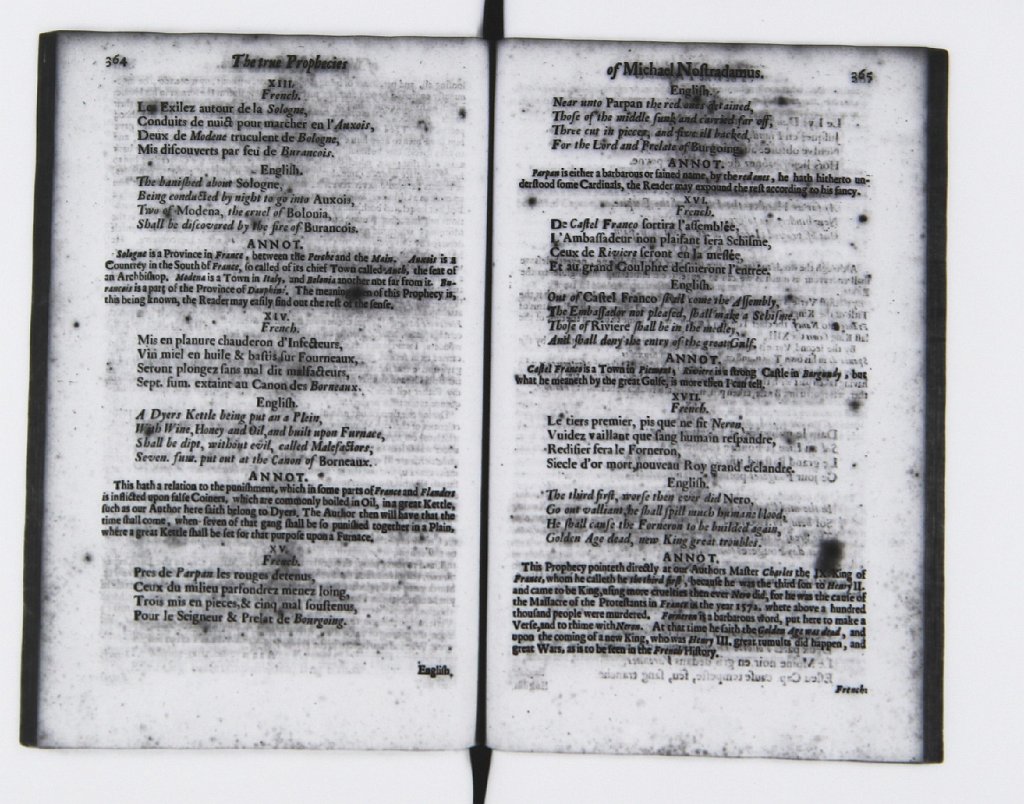 364 The true Prophecies
XIII.
French.
Les Exilez autour de la Sologne,
Conduits de nuict pour marcher en l'Auxois,
Deux de Modene truculent de Bologne,
Mis discouverts par feu de Burancois.
English.
The banished about Sologne,
Being conducted by night to go into Auxois,
Two of Modena, the cruel of Bolonia,
Shall be discovered by the fire of Burancois.
ANNOT.
Sologne is a Province in France, between the Perche and the Main, Auxois is a
Countrey in the South of France, so called of its chief Town called Auch, the seat of
an Archbishop. Modena is a Town in Italy, and Bolonia another not far from it. Bu-
rancois is a part of the Province of Dauphiné. The meaning then of this Prophecy is,
this being known, the Reader may easily find out the rest of the sense.
XIV.
French.
Mis en planure chauderon d'Infecteurs,
Vin miel en huile & bastis sur Fourneaux,
Seront plongez sans mal dit malfacteurs,
Sept. fum. extaint au Canon des Borneaux.
English.
A Dyers Kettle being put an a Plein,
With Wine, Honey and Oil, and built upon Furnace,
Shall be dipt, without evil, called Malefactors,
Seven. fum. put out at the Canon of Borneaux.
ANNOT.
This hath a relation to the punishment, which in some parts of France and Flanders
is inflicted upon false Coiners, which are commonly boiled in Oil, in a great Kettle,
such as our Author here saith belong to Dyers. The Author then will have that the
time shall come, when seven of that gang shall be so punished together in a Plain,
where a great Kettle shall be set for that purpose upon a Furnace.
XV.
French.
Pres de Parpan les rouges detenus,
Ceux du milieu parfondrez menez loing,
Trois mis en pieces, & cinq mal soustenus,
Pour le Seigneur & Prelat de Bourgoing.
English,
of Michael Nostradamus. 365
English.
Near unto Parpan the red ones detained,
Those of the middle sunk and carried far off,
Three cut in pieces, and five ill backed,
For the Lord and Prelate of Burgoing.
ANNOT.
Parpan is either a barbarous or fained name, by the red ones, he hath hitherto un-
derstood some Cardinals, the Reader may expound the rest according to his fancy.
XVI.
French.
De Castel Franco sortira l'assemblée,
L'Ambassadeur non plaisant sera Schisme,
Ceux de Riviere seront en la meslée,
Et au grand Goulphre desnieront l'entrée.
English.
Out of Castel Franco shall come the Assembly,
The Embassador not pleased, shall make a Schisme,
Those of Riviere shall be in the medley,
And shall deny the entry of the great Gulf.
ANNOT.
Castel Franco is a Town in Piemont, Riviere is a strong Castle in Burgundy, but
what he meaneth by the great Gulfe, is more then I can tell.
XVII.
French.
Le tiers premier, pis que ne fit Neron,
Vuidez vaillant que sang humain respandre,
Redifier fera le Forneron,
Siecle d'or mort, nouveau Roy grand esclandre.
English.
The third first, worse then ever did Nero,
Go out valliant, he shall spill much humane blood,
He shall cause the Forneron to be builded again,
Golden Age dead, new King great troubles.
ANNOT.
This Prophecy pointeth directly at our Authors Master Charles the IX. King of
France, whom he calleth he the third first, because he was the third son to Henry II.
and came to be King, using more cruelties then ever Nero did, for he was the cause of
the Massacre of the Protestants in France in the year 1572. where above a hundred
thousand people were murdered. Forneron is a barbarous word, put here to make a
Verse, and to rhime with Neron. At that time he saith the Golden Age was dead, and
upon the coming of a new King, who was Henry III. great tumults did happen, and
great Wars, as is to be seen in the French History.
French: